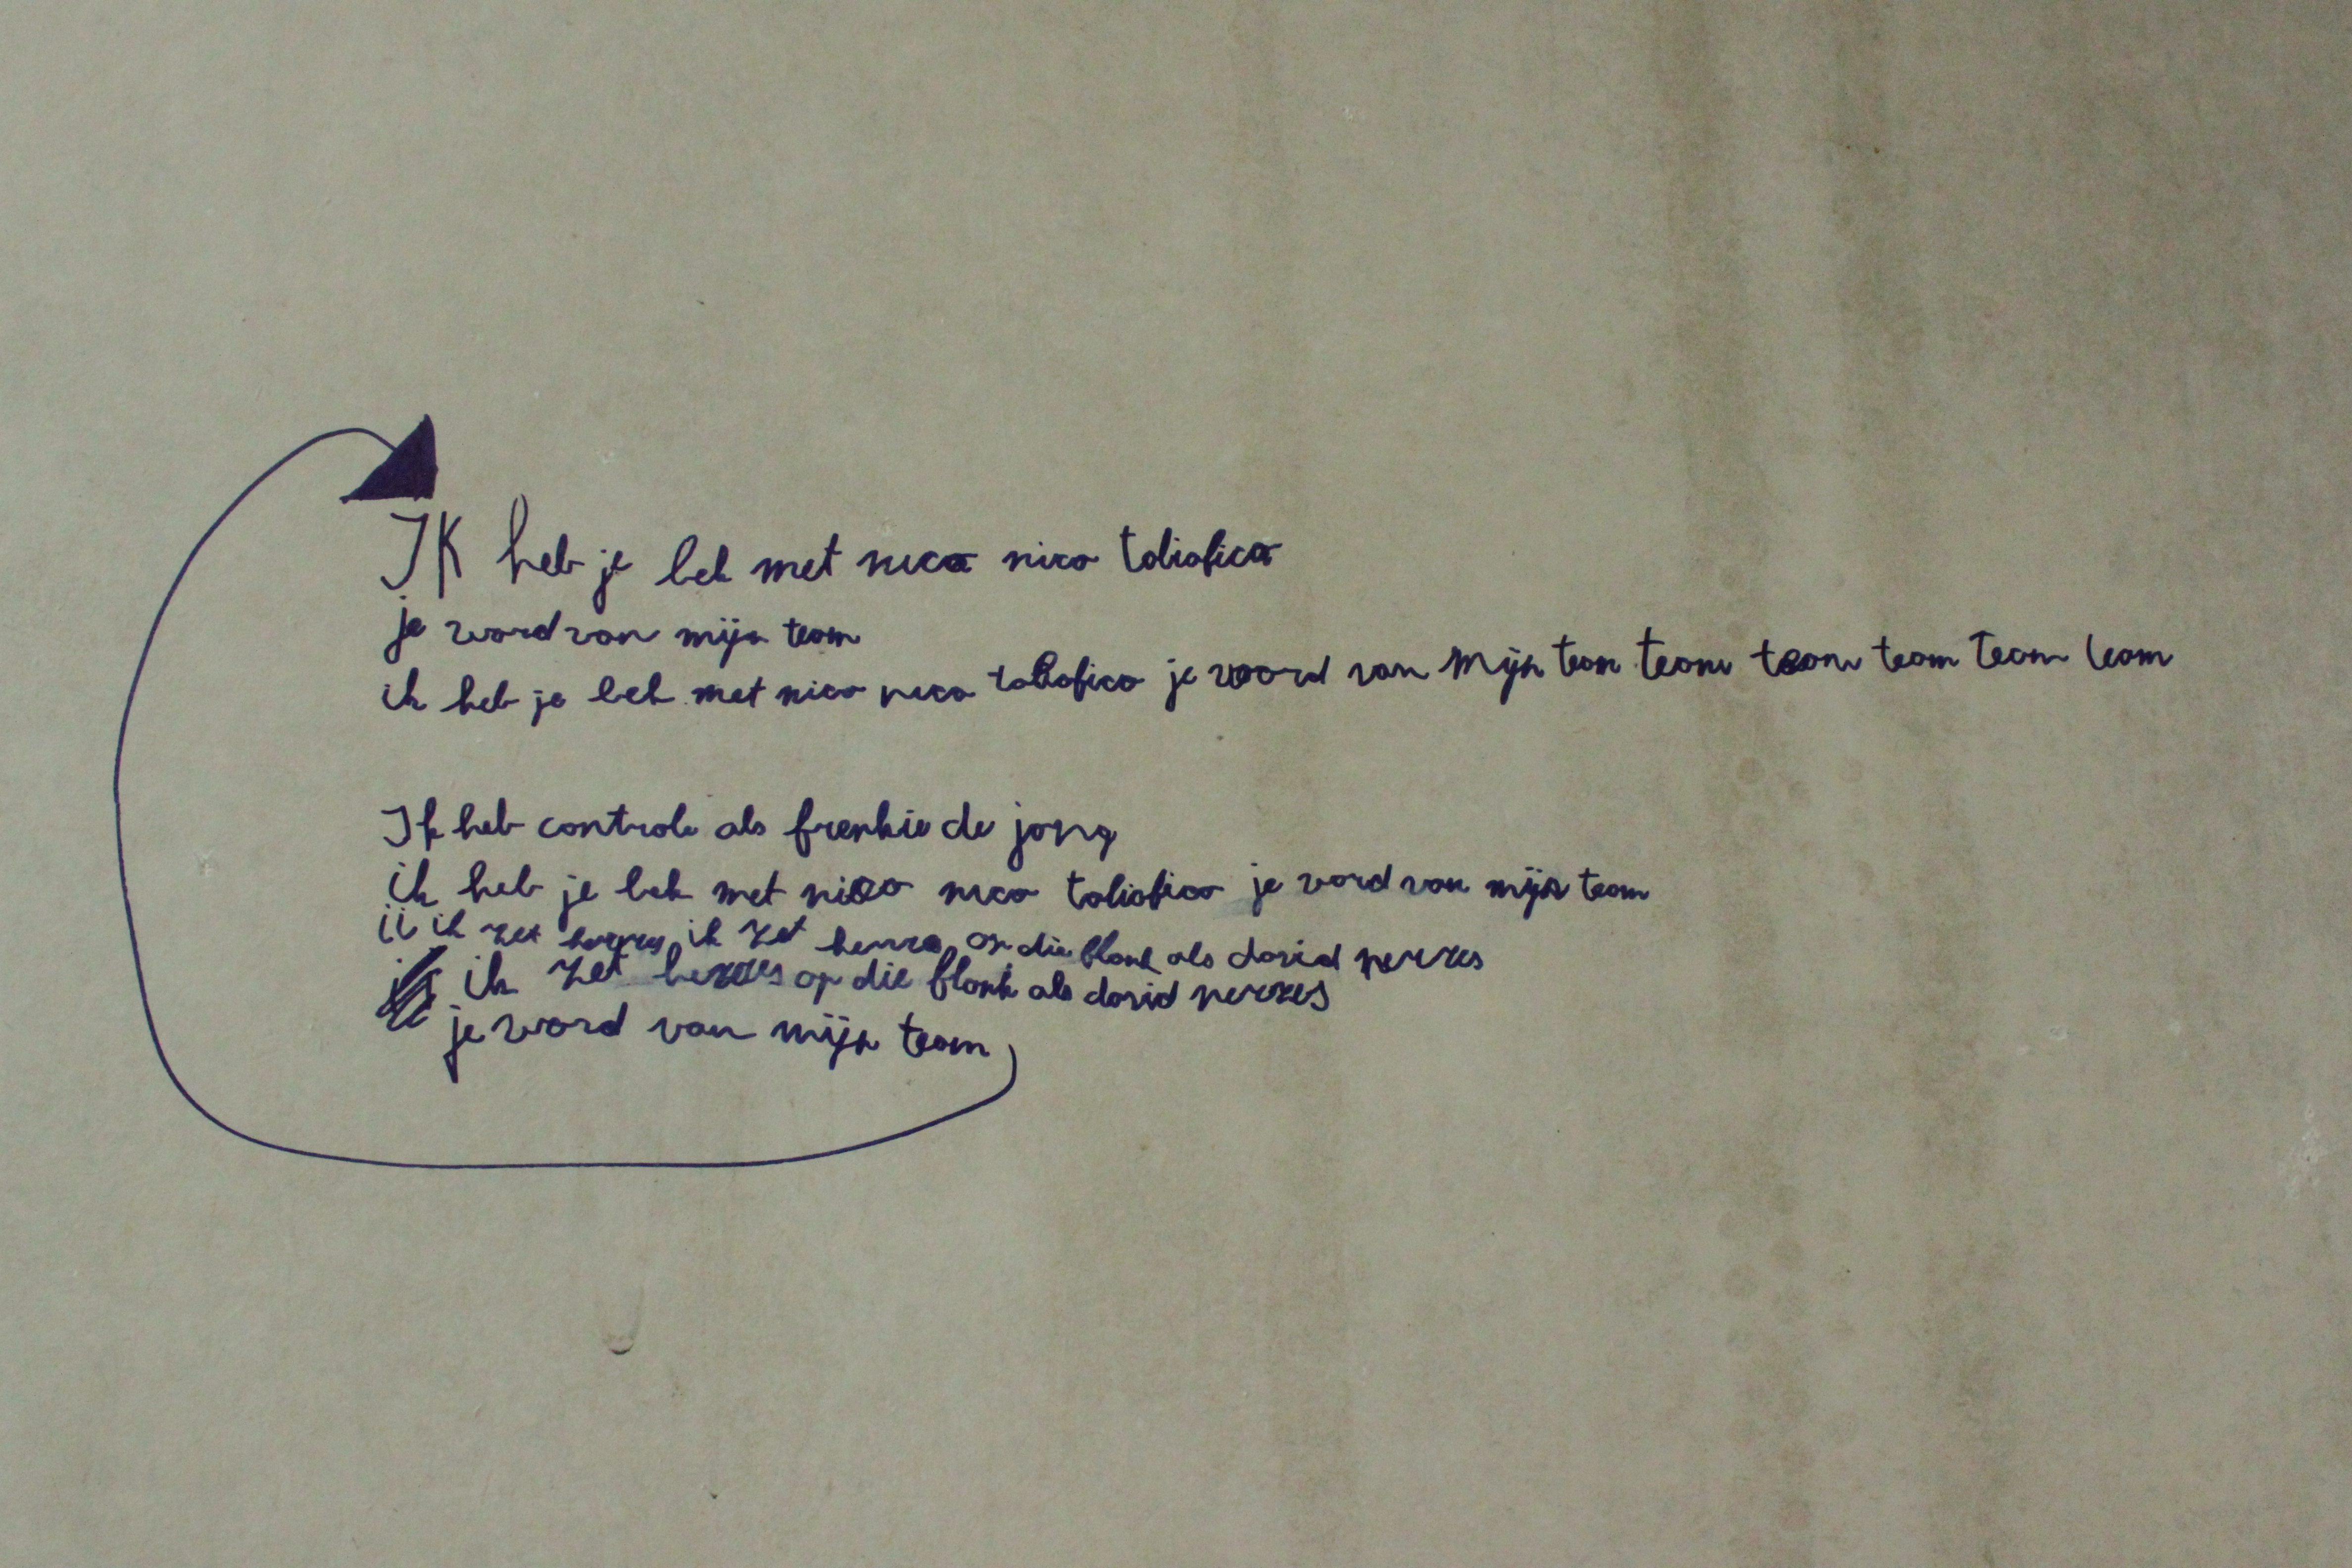 IK heb je bek met nico nico toliafico
je word van mijn team
ik heb je bek met nico nico toliafico je word van mijn team team team team team team
Ik heb controle als frenkie de jong
ik heb je bek met nico nico toliafico je word van mijn team
ik zet ik zet op die flank als david nerres
ik zet op die flank als david nerres
je word van mijn team